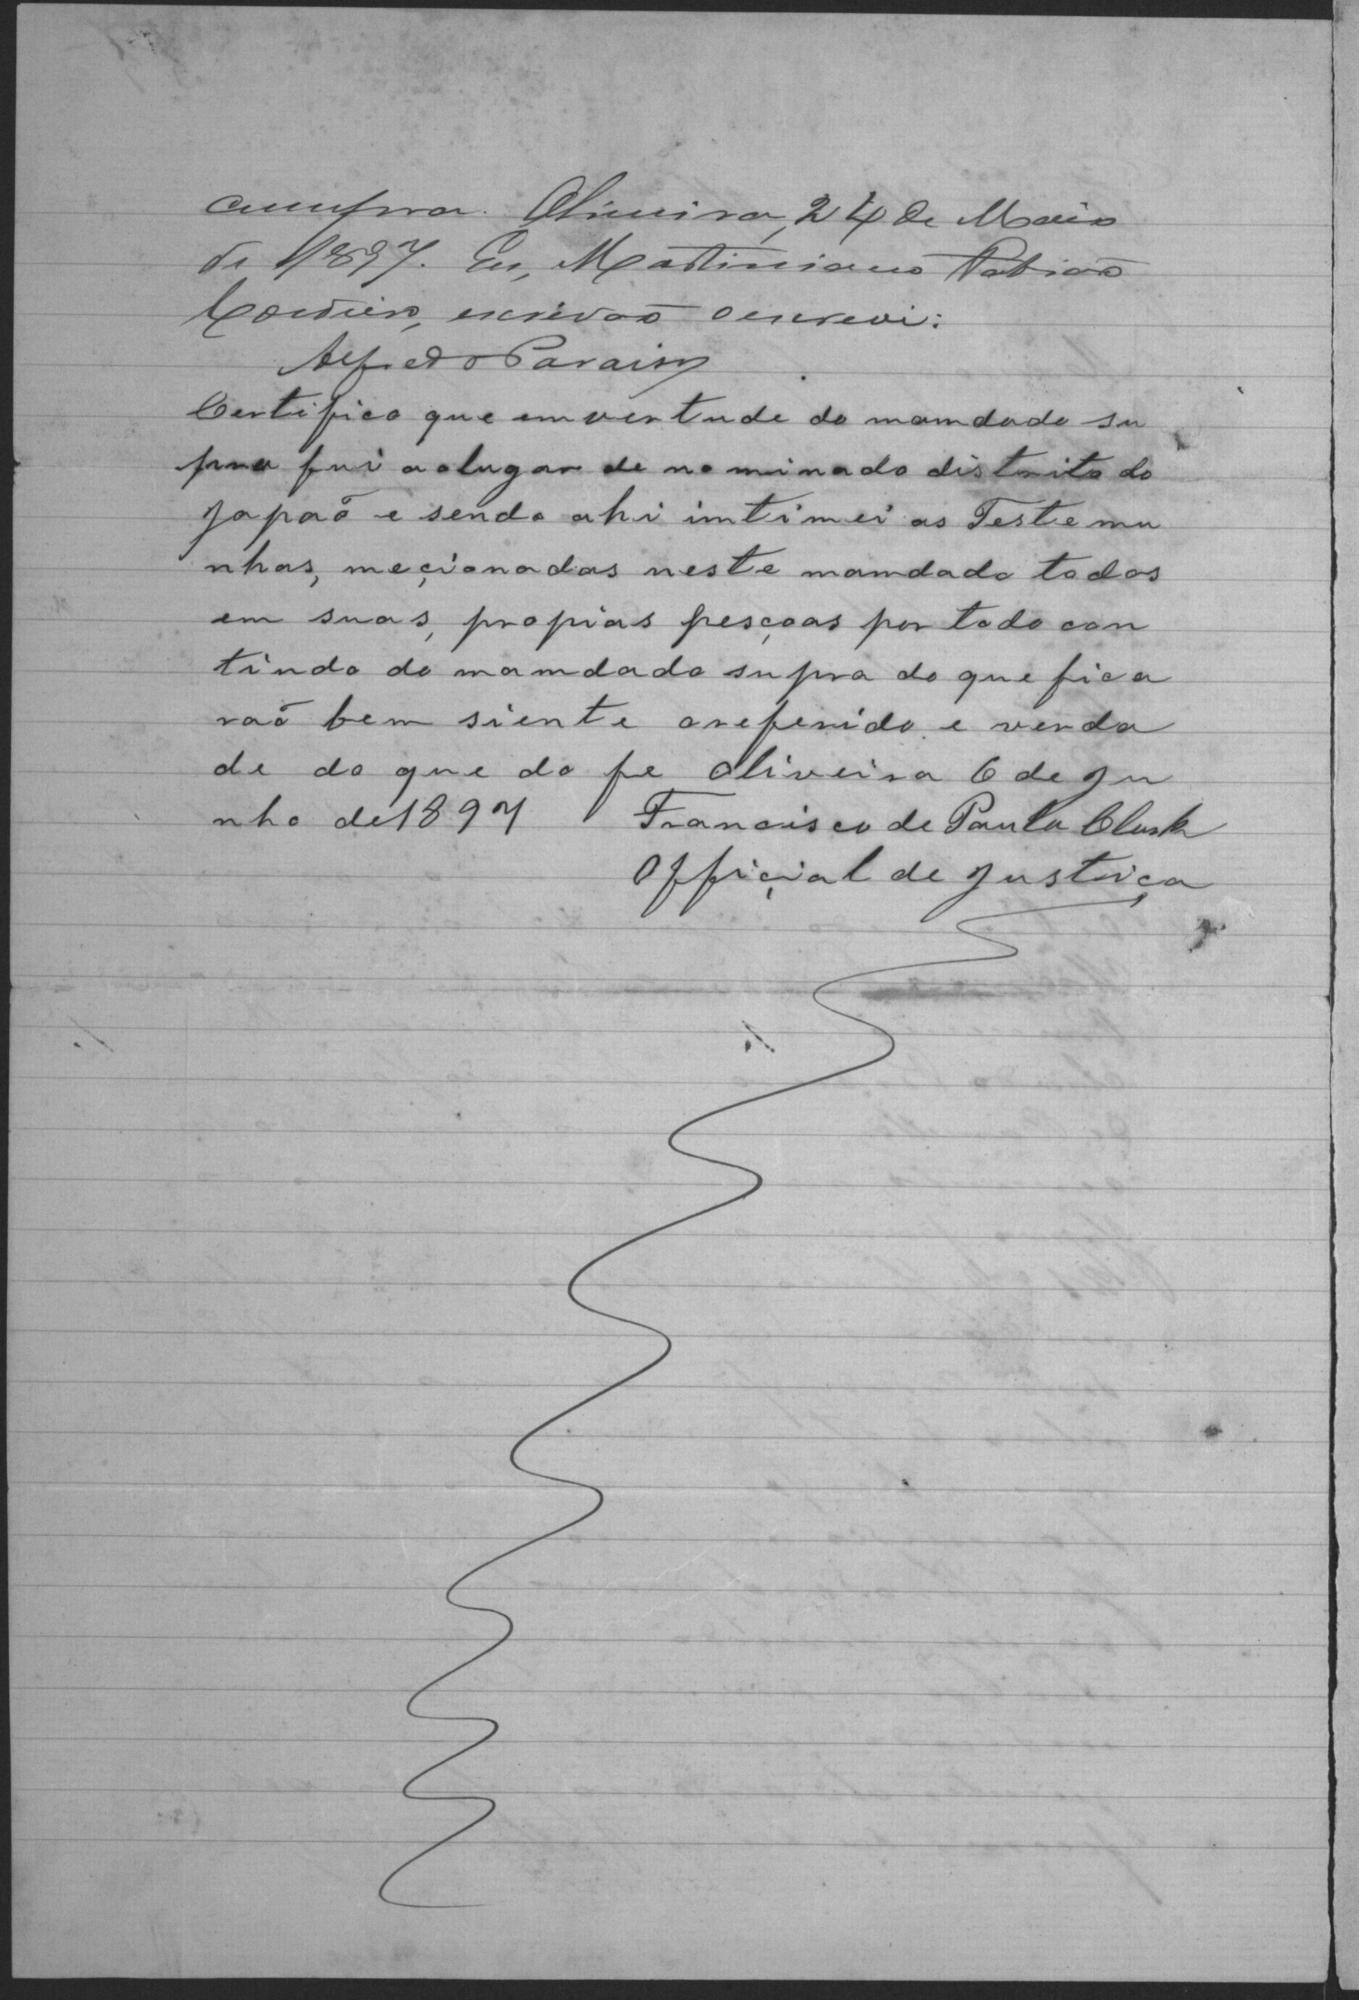 cumpra. Oliveira, 24 de Maio
de 1897. Eu, Martiniano
Cordeiro, escrivão o escrevi:
Alfredo Paraiso
Certifico que em vertude do mamdado su
pra fui ao lugar de nominado distrito do
Japaõ e sendo ahi imtimei as Testemu
nhas, meçionadas neste mamdado todas
em suas, propias pesçoas por todo con
tindo do mamdado supra do que fica
raõ bem siente o referido e verda
de do que do fe Oliveira 6 de Ju
nho de 1897 Francisco de Paula
Offiçial de Justiça